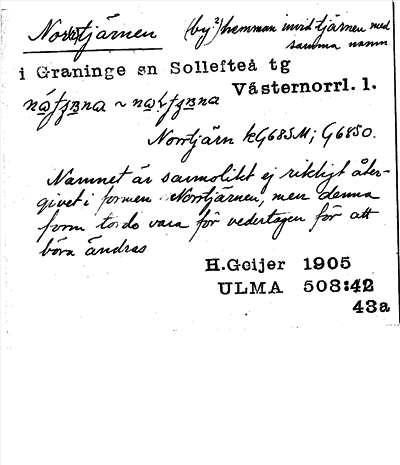 Norrtjärnen (by²⁾) hemman invid tjärnen med
samma namn
i Graninge sn Sollefteå tg
Västernorrl. l.
Norrtjärn kG68SM; G68SO.
Namnet är sannolikt ej riktigt åter-
givet i formen Norrtjärnen, men denna
form torde vara för vedertagen för att
böra ändras
H.Geijer 1905
ULMA 508:42
43a